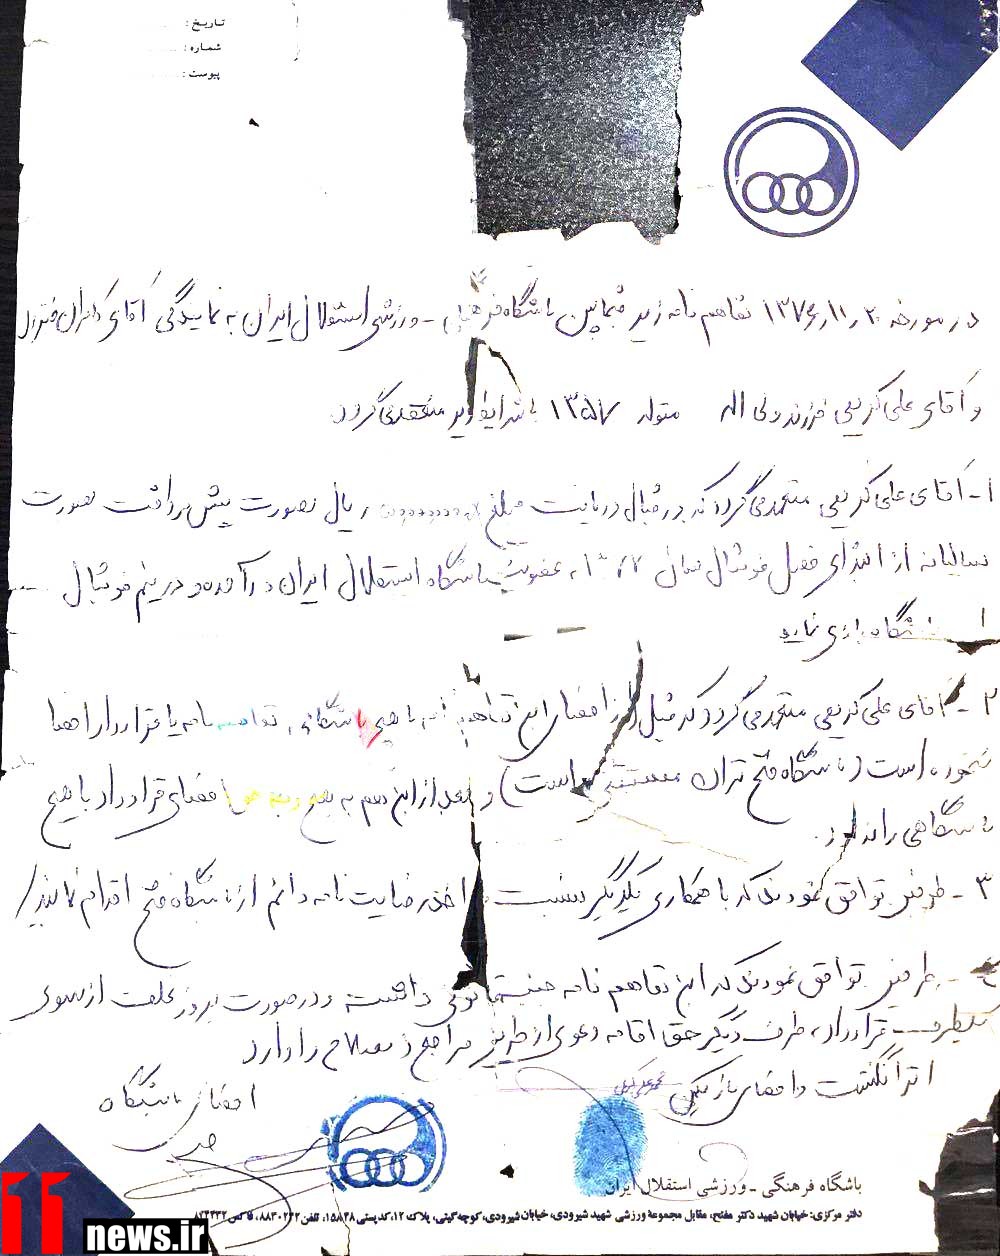 تاریخ :
شماره :
پیوست :
در مورخه ۲۰ر۱۱ر۱۳۷۶ تفاهم نامه زیر فیمابین باشگاه فرهنگی - ورزشی استقلال ایران به نمایندگی آقای کامران
و آقای علی کریمی فرزند ولی اله متولد ۱۳۵۷ با شرایط زیر منعقد می گردد
۱- آقای علی کریمی متعهد می گردد که در قبال دریافت مبلغ ریال بصورت پیش پرداخت بصورت
سالیانه از ابتدای فصل فوتبال سال به عضویت باشگاه استقلال ایران در آمده و در تیم فوتبال
باشگاه بازی نماید
۲- آقای علی کریمی متعهد می گردد که قبل از امضای این تفاهم نامه با هیچ باشگاهی تفاهم نامه یا قرارداد امضا
ننموده است (باشگاه فتح تهران مستثنی است) و بعد از این هم به هیچ وجه حق امضای قرارداد با هیچ
باشگاهی را ندارد.
۳- طرفین توافق نمودند که با همکاری یکدیگر نسبت به اخذ رضایت نامه دائم از باشگاه فتح اقدام نمایند/
۴- طرفین توافق نمودند که این تفاهم نامه جنبه قانونی داشته و در صورت بروز تخلف از سوی
یکطرف قرارداد، طرف دیگر حق اقامه دعوی از طریق مراجع ذیصلاح را دارد
اثر انگشت و امضای بازیکن
امضای باشگاه
باشگاه فرهنگی - ورزشی استقلال ایران
دفتر مرکزی: خیابان شهید دکتر مفتح، مقابل مجموعهٔ ورزشی شهید شیرودی، خیابان شیرودی، کوچه گیتی، پلاک ۱۲، کدپستی ۱۵۸۳۸، تلفن ۸۸۳۰۲۴۲، فاکس
11
news.ir